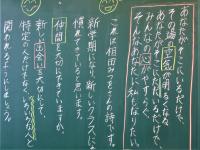 あなたがそこにいるだけで、
その場の空気が明るくなる
あなたがそこにいるだけで
みんなの心がやすらぐ
そんなあなたに私もなりたい
これは相田みつをさんの詩です。
新学期になり、新しいクラスにも
慣れてきていると思います。
仲間を大切にできていますか。
新しい出会いを大切に、
特定の人だけでなく、いろいろな人と
関われるようにしましょう。